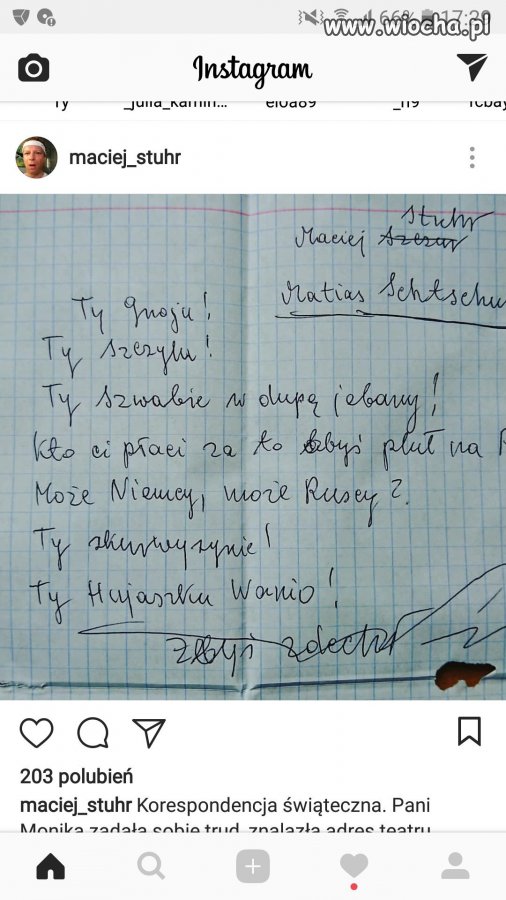 66% 17:39
www.wiocha.pl
Instagram
Ty _julia_kamin... eloa89 _n9 rcbay
maciej_stuhr
Stuhr
Maciej Szczur
Matias Schtschu
Ty gnoju!
Ty szczylu!
Ty szwabie w dupą jebany!
Kto ci płaci za to żebyś pluł na P
Może Niemcy, może Ruscy?
Ty skurwysynie!
Ty Hujaszku Wanio!
Żebyś zdechł
203 polubień
maciej_stuhr Korespondencja świąteczna. Pani
Monika zadała sobie trud, znalazła adres teatru